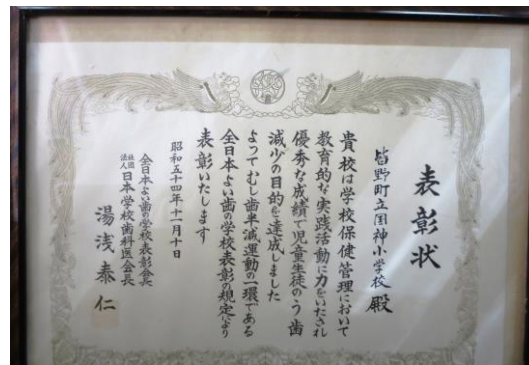 表彰状
皆野町立国神小学校殿
貴校は学校保健管理において
教育的な実践活動に力をいたされ
優秀な成績で児童生徒のう歯
減少の目的を達成しました
よってむし歯半減運動の一環である
全日本よい歯の学校表彰の規定により
表彰いたします
昭和五十四年十一月十日
全日本よい歯の学校表彰会長
社団法人日本学校歯科医会長
湯浅泰仁